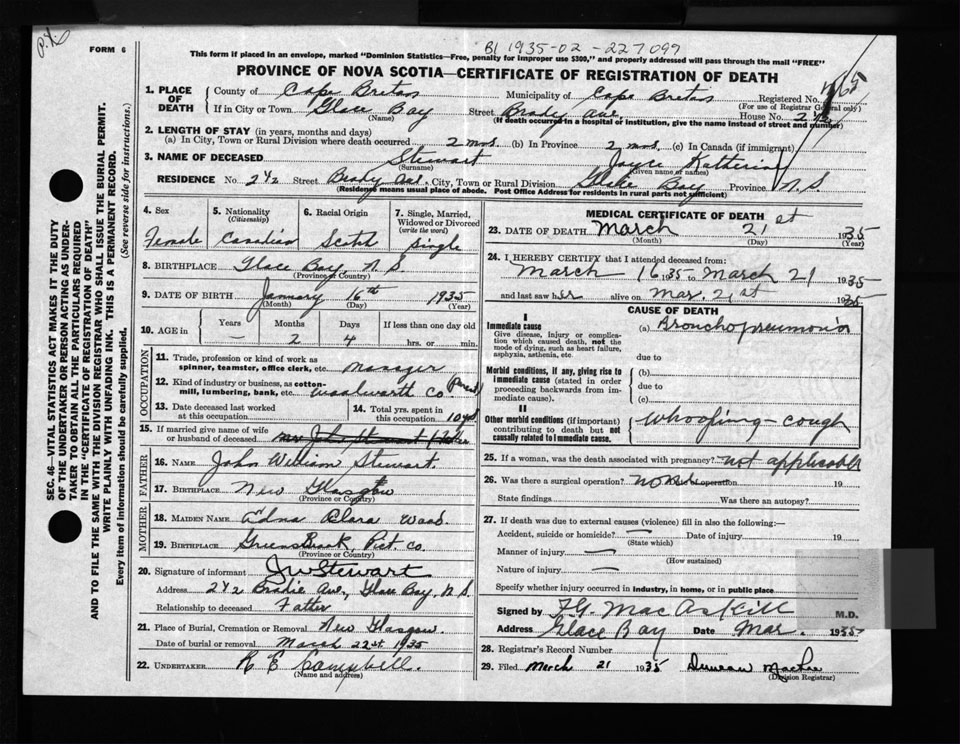 FORM 6
B1 1935-02-227099
This form if placed in an envelope, marked "Dominion Statistics—Free, penalty for improper use $300," and properly addressed will pass through the mail "FREE"
PROVINCE OF NOVA SCOTIA—CERTIFICATE OF REGISTRATION OF DEATH
SEC. 46—VITAL STATISTICS ACT MAKES IT THE DUTY
OF THE UNDERTAKER OR PERSON ACTING AS UNDER-
TAKER TO OBTAIN ALL THE PARTICULARS REQUIRED
IN THE "CERTIFICATE OF REGISTRATION OF DEATH"
AND TO FILE THE SAME WITH THE DIVISION REGISTRAR WHO SHALL ISSUE THE BURIAL PERMIT.
WRITE PLAINLY WITH UNFADING INK. THIS IS A PERMANENT RECORD.
Every item of information should be carefully supplied. (See reverse side for instructions.)
1. PLACE OF DEATH
County of Cape Breton Municipality of Cape Breton Registered No.
(For use of Registrar General only)
If in City or Town Glace Bay Street Brady Ave. House No. 242
(Name) (If death occurred in a hospital or institution, give the name instead of street and number)
2. LENGTH OF STAY (in years, months and days)
(a) In City, Town or Rural Division where death occurred 2 mos. (b) In Province 2 mos. (c) In Canada (if immigrant)
3. NAME OF DECEASED Stewart Joyce Katherine
(Surname) (Given name or names)
RESIDENCE No. 242 Street Brady Ave. City, Town or Rural Division Glace Bay Province N.S
(Residence means usual place of abode. Post Office Address for residents in rural parts not sufficient)
4. Sex 5. Nationality (Citizenship) 6. Racial Origin 7. Single, Married, Widowed or Divorced (write the word)
Female Canadian Scotch Single
8. BIRTHPLACE Glace Bay, N.S.
(Province or Country)
9. DATE OF BIRTH January 16th 1935
(Month) (Day) (Year)
10. AGE in Years Months Days If less than one day old
— 2 4 hrs. or min.
OCCUPATION
11. Trade, profession or kind of work as spinner, teamster, office clerk, etc. Manager
12. Kind of industry or business, as cotton-mill, lumbering, bank, etc. Woolworth Co (Parent)
13. Date deceased last worked at this occupation
14. Total yrs. spent in this occupation 10 yrs
15. If married give name of wife or husband of deceased Mrs John Stewart
FATHER
16. NAME John William Stewart.
17. BIRTHPLACE New Glasgow
(Province or Country)
MOTHER
18. MAIDEN NAME Edna Clara Wood.
19. BIRTHPLACE Greens Brook, Pict. Co.
(Province or Country)
20. Signature of informant J W Stewart
Address 242 Brodie Ave, Glace Bay, N.S
Relationship to deceased Father
21. Place of Burial, Cremation or Removal New Glasgow.
Date of burial or removal March 22st 1935
22. UNDERTAKER R E Campbell.
(Name and address)
MEDICAL CERTIFICATE OF DEATH
23. DATE OF DEATH March 21st 1935
(Month) (Day) (Year)
24. I HEREBY CERTIFY that I attended deceased from:
March 16 1935 to March 21 1935
and last saw her alive on Mar. 21st 1935
CAUSE OF DEATH
I
Immediate cause
Give disease, injury or complication which caused death, not the mode of dying, such as heart failure, asphyxia, asthenia, etc.
(a) Bronchopneumonia
due to
Morbid conditions, if any, giving rise to immediate cause (stated in order proceeding backwards from immediate cause).
(b)
due to
(c)
II
Other morbid conditions (if important) contributing to death but not causally related to immediate cause.
Whooping-cough
25. If a woman, was the death associated with pregnancy? not applicable
26. Was there a surgical operation? no Date of operation 19
State findings Was there an autopsy?
27. If death was due to external causes (violence) fill in also the following:—
Accident, suicide or homicide? — Date of injury 19
(State which)
Manner of injury —
(How sustained)
Nature of injury —
Specify whether injury occurred in industry, in home, or in public place
Signed by F.G. MacAskill M.D.
Address Glace Bay Date Mar. 1935
28. Registrar's Record Number
29. Filed March 21 1935 Duncan MacRae
(Division Registrar)